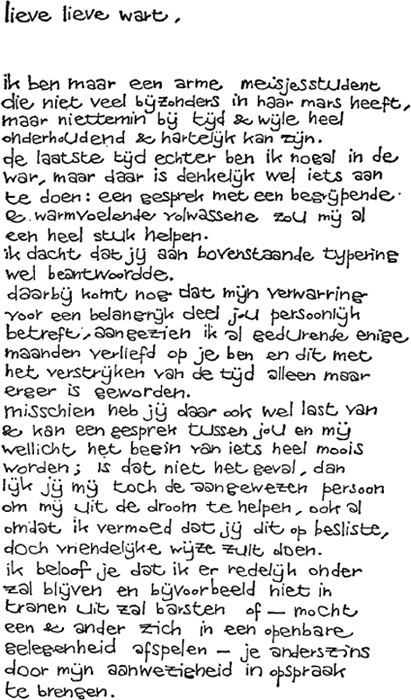 lieve lieve wart,
ik ben maar een arme meisjesstudent
die niet veel bijzonders in haar mars heeft,
maar niettemin bij tijd & wijle heel
onderhoudend & hartelijk kan zijn.
de laatste tijd echter ben ik nogal in de
war, maar daar is denkelijk wel iets aan
te doen: een gesprek met een begrijpende
& warmvoelende volwassene zou mij al
een heel stuk helpen.
ik dacht dat jij aan bovenstaande typering
wel beantwoordde.
daarbij komt nog dat mijn verwarring
voor een belangrijk deel jou persoonlijk
betreft, aangezien ik al gedurende enige
maanden verliefd op je ben en dit met
het verstrijken van de tijd alleen maar
erger is geworden.
misschien heb jij daar ook wel last van
& kan een gesprek tussen jou en mij
wellicht het begin van iets heel moois
worden; is dat niet het geval, dan
lijk jij mij toch de aangewezen persoon
om mij uit de droom te helpen, ook al
omdat ik vermoed dat jij dit op besliste,
doch vriendelijke wijze zult doen.
ik beloof je dat ik er redelijk onder
zal blijven en bijvoorbeeld niet in
tranen uit zal barsten of — mocht
een & ander zich in een openbare
gelegenheid afspelen — je anderszins
door mijn aanwezigheid in opspraak
te brengen.